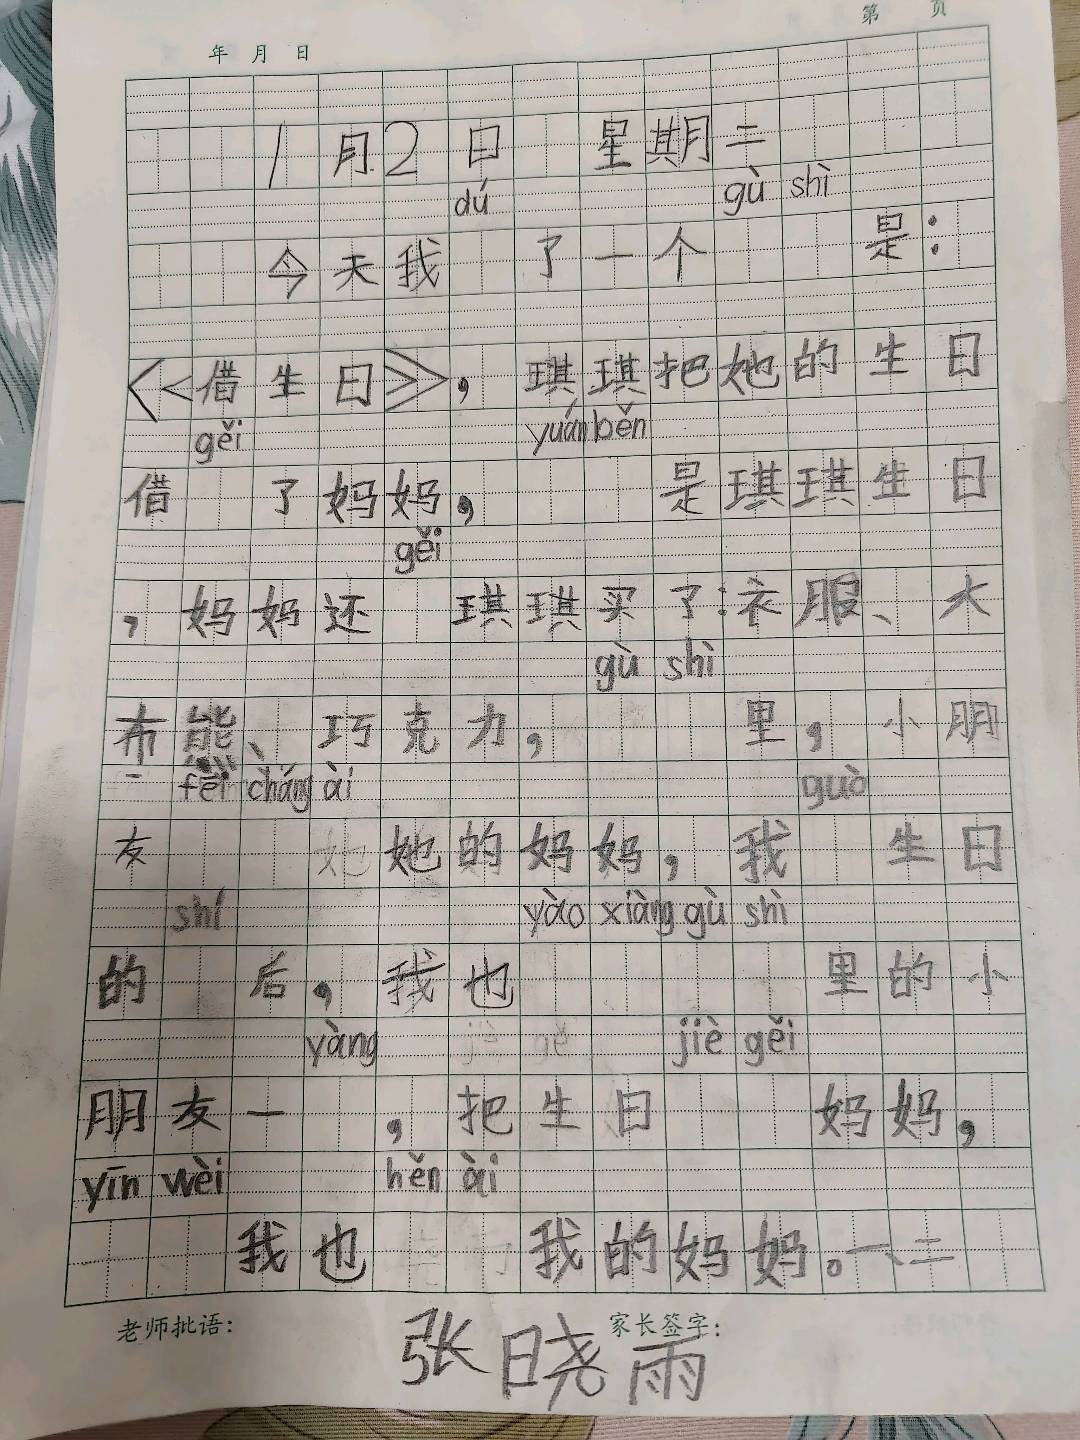 第 页
年 月 日
1月2日 星期二
dú gù shì
今天我 了一个 是：
<<借生日>>，琪琪把她的生日
gěi yuán běn
借 了妈妈， 是琪琪生日
gěi
，妈妈还 琪琪买了：衣服、大
gù shì
布熊、巧克力， 里，小朋
fēi cháng ài guò
友 她的妈妈，我 生日
shí yào xiàng gù shì
的 后，我也 里的小
yàng jiè gěi
朋友一 ，把生日 妈妈，
yīn wèi hěn ài
我也 我的妈妈。一、二
老师批语： 家长签字：
张晓雨